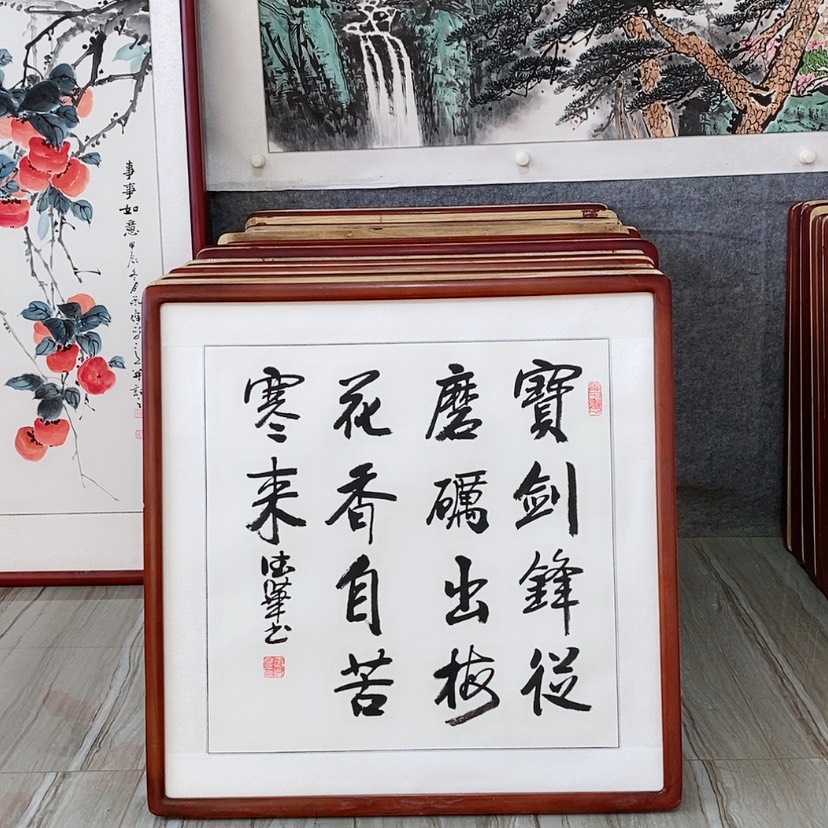 寶劍鋒從
磨礪出梅
花香自苦
寒来
事事如意